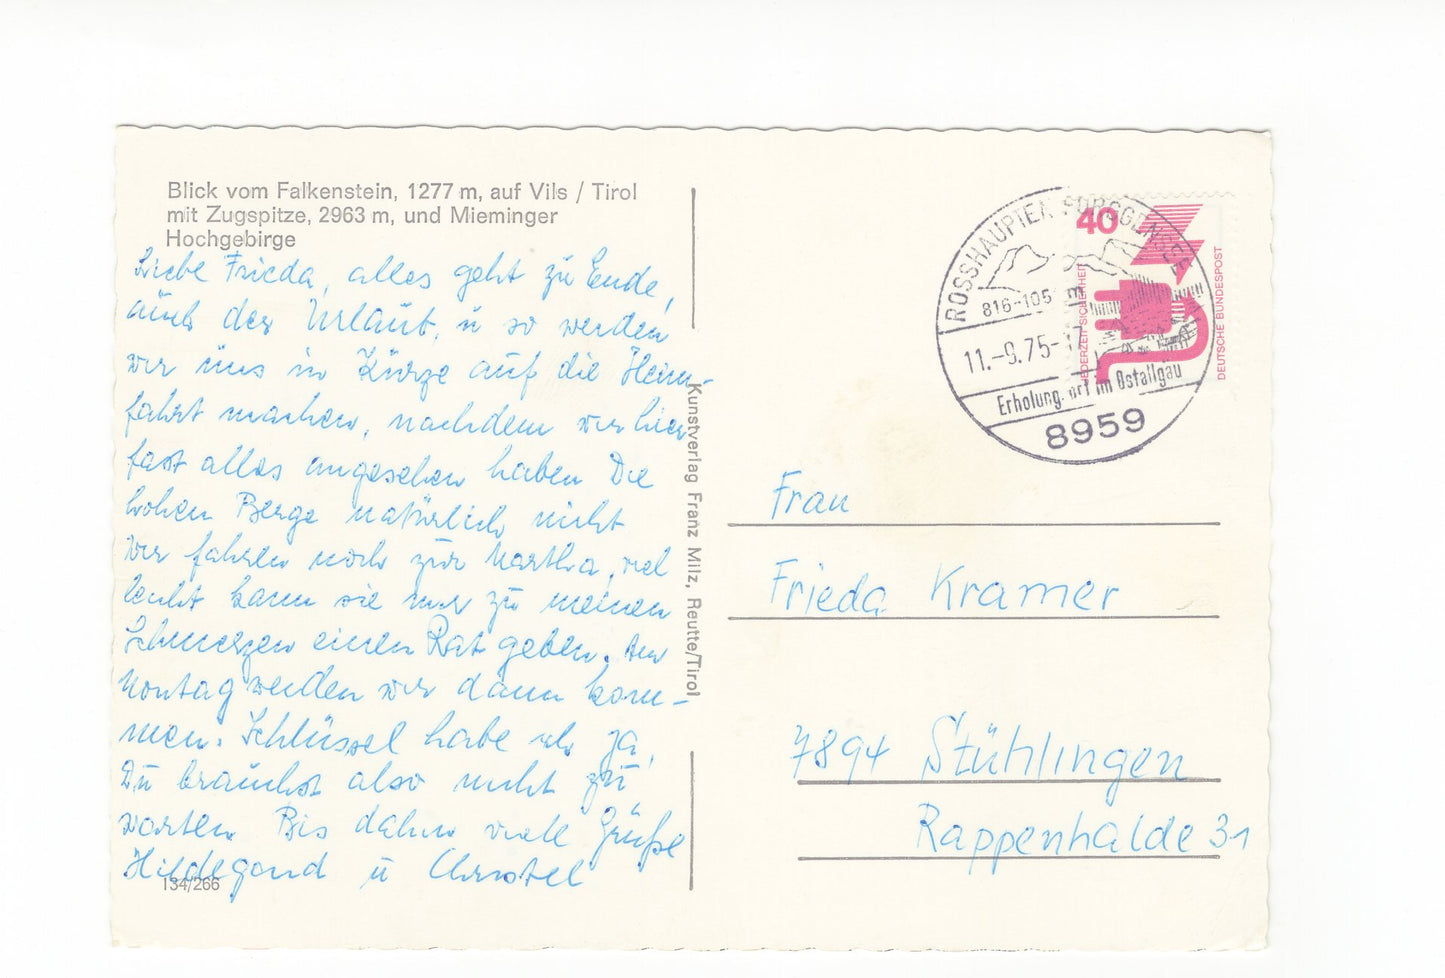 Blick vom Falkenstein, 1277 m, auf Vils / Tirol
mit Zugspitze, 2963 m, und Mieminger
Hochgebirge
Liebe Frieda, alles geht zu Ende,
auch der Urlaub, u so werden
wir uns in Kürze auf die Heim-
fahrt machen, nachdem wir hier
fast alles angesehen haben Die
hohen Berge natürlich nicht
Wir fahren noch zur Martha, viel
leicht kann sie mir zu meinen
Schmerzen einen Rat geben. Am
Montag werden wir dann kom-
men. Schlüssel habe ich ja,
Du brauchst also nicht zu
warten Bis dahin viele Grüße
Hildegard u Christel
134/266
Kunstverlag Franz Milz, Reutte/Tirol
ROSSHAUPTEN FORGGENSEE
816-105
11.-9.75-17
Erholungsort im Ostallgäu
8959
40
JEDERZEIT SICHERHEIT
DEUTSCHE BUNDESPOST
Frau
Frieda Kramer
7894 Stühlingen
Rappenhalde 31